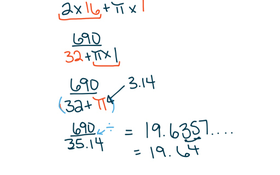 2 x 16 + π x 1
690
32 + π x 1
690
(32 + π)
3.14
690 ÷
35.14
= 19.6357....
= 19.64